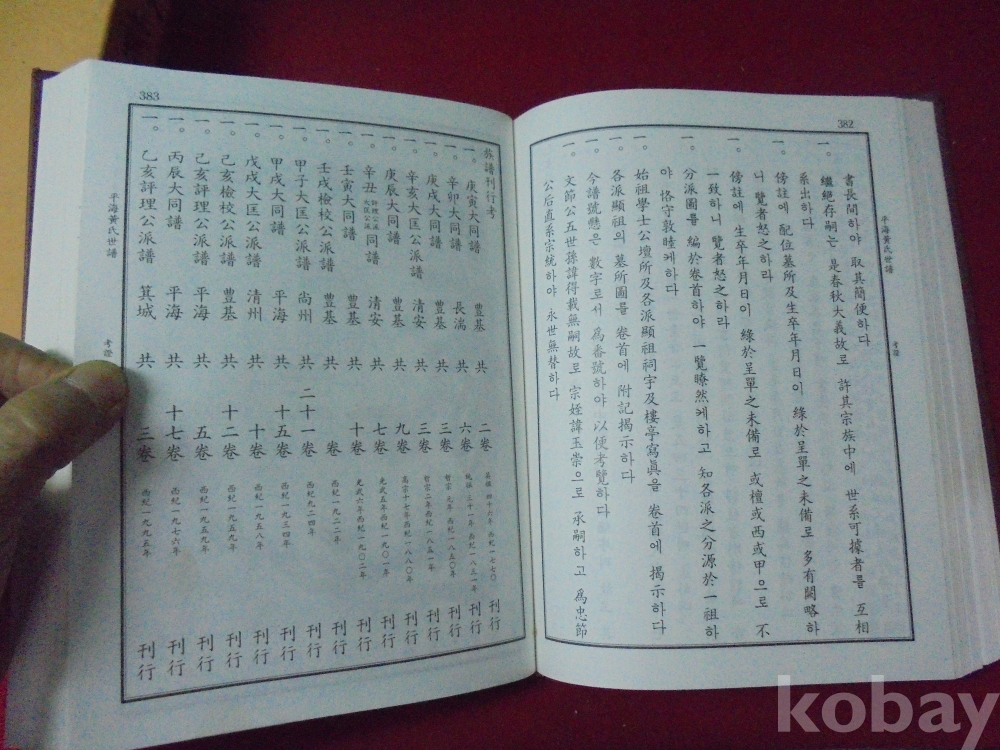 382
平海黃氏世譜
考證
書長間하야 取其簡便하다
一。 繼絶存嗣는 是春秋大義故로 許其宗族中에 世系可據者를 互相
系出하다
一。 傍註에 配位墓所及生卒年月日이 緣於呈單之未備로 多有闕略하
니 覽者恕之하라
一。 傍註에 生卒年月日이 緣於呈單之未備로 或檀或西或甲으로 不
一致하니 覽者恕之하라
一。 分派圖를 編於卷首하야 一覽瞭然케하고 知各派之分源於一祖하
야 恪守敦睦케하다
一。 始祖學士公壇所及各派顯祖祠宇及樓亭寫眞을 卷首에 揭示하다
一。 各派顯祖의 墓所圖를 卷首에 附記揭示하다
一。 今譜號懸은 數字로서 爲番號하야 以便考覽하다
一。 文節公五世孫諱得載無嗣故로 宗姪諱玉崇으로 承嗣하고 爲忠節
公后直系宗統하야 永世無替하다
383
族譜刊行考
一。 庚寅大同譜 豊基 共 二卷 英祖 四十六年 西紀一七七0 刊行
一。 辛卯大同譜 長湍 共 六卷 純祖 三十一年 西紀一八三一年 刊行
一。 庚戌大同譜 豊基 共 三卷 哲宗 元年 西紀一八五0年 刊行
一。 辛亥大匡公派譜 清安 共 三卷 哲宗二年 西紀一八五一年 刊行
一。 庚辰大同譜 豊基 共 九卷 高宗十七年 西紀一八八0年 刊行
一。 辛丑 評理公派 大匡公派 同譜 清安 共 七卷 光武五年 西紀一九0一年 刊行
一。 壬寅大同譜 豊基 共 十卷 光武六年 西紀一九0二年 刊行
一。 壬戌檢校公派譜 豊基 共 卷 西紀一九二二年 刊行
一。 甲子大匡公派譜 尙州 共 二十一卷 西紀一九二四年 刊行
一。 甲戌大同譜 平海 共 十五卷 西紀一九三四年 刊行
一。 戊戌大匡公派譜 清州 共 十卷 西紀一九五八年 刊行
一。 己亥檢校公派譜 豊基 共 十二卷 西紀一九五九年 刊行
一。 己亥評理公派譜 平海 共 五卷 西紀一九五九年 刊行
一。 丙辰大同譜 平海 共 十七卷 西紀一九七六年 刊行
一。 乙亥評理公派譜 箕城 共 三卷 西紀一九九五年 刊行
平海黃氏世譜
考證
kobay